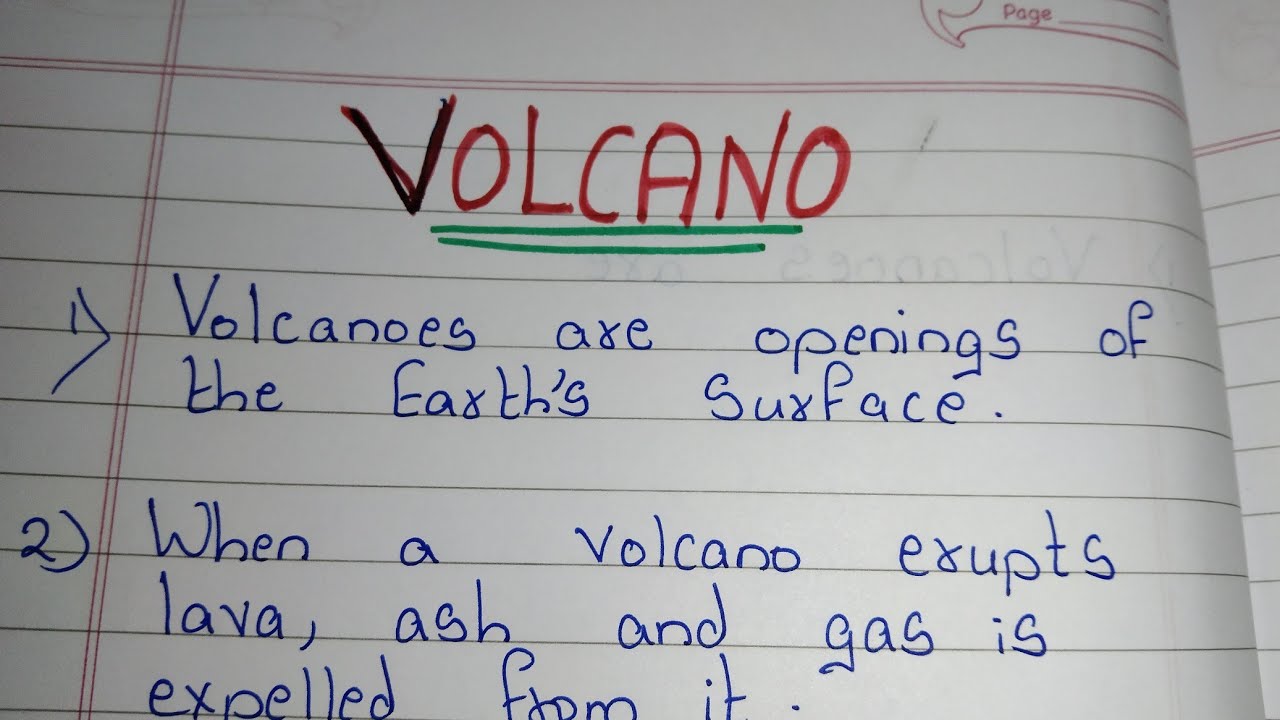 Page
VOLCANO
1) Volcanoes are openings of
the Earth's Surface.
2) When a volcano erupts
lava, ash and gas is
expelled from it.